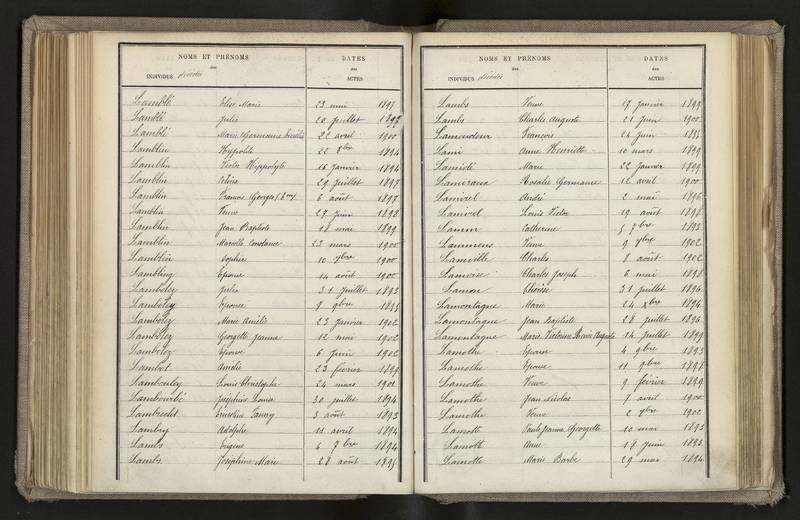 NOMS ET PRÉNOMS DATES
des des
INDIVIDUS décédés ACTES
Lamblé Elise Marie 23 mai 1898
Lamblé Julie 20 juillet 1898
Lamblé Marie Germaine 22 avril 1900
Lamblin Hippolite 22 Xbre 1894
Lamblin Victor Hippolyte 16 janvier 1894
Lamblin Célina 29 juillet 1897
Lamblin Francois Georges 6 août 1897
Lamblin Veuve 27 juin 1898
Lamblin Jean Baptiste 18 mai 1899
Lamblin Marcelle Constance 23 mars 1900
Lamblin Sophie 10 9bre 1900
Lambling Epouse 14 août 1900
Lambolez Julia 31 juillet 1893
Lambolez Epouse 9 9bre 1895
Lambolez Marie Amélie 23 janvier 1902
Lambolez Georgette Jeanne 12 mai 1902
Lambolez Epouse 6 juin 1902
Lambot Amélie 23 février 1899
Lambouley Louis Christophe 24 mars 1901
Lambourbé Joséphine Louise 30 juillet 1894
Lambrecht Ernestine Fanny 3 août 1893
Lambry Adolphe 11 avril 1894
Lambs Eugène 6 7bre 1894
Lambs Joséphine Marie 28 août 1895
NOMS ET PRÉNOMS DATES
des des
INDIVIDUS décédés ACTES
Lambs Veuve 17 janvier 1899
Lambs Charles Auguste 21 juin 1900
François 24 juin 1895
Lami Anne Henriette 10 mars 1899
Marie 22 janvier 1899
Lamiraux Rosalie Germaine 12 avril 1900
Lamirel André 2 mai 1896
Lamirel Louis Victor 19 août 1898
Lamm Catherine 5 7bre 1893
Lammens Veuve 9 9bre 1902
Lamoille Charles 8 août 1902
Lamoise Charles Joseph 6 mai 1898
Lamon 31 juillet 1896
Lamontagne Marie 24 Xbre 1894
Lamontagne Jean Baptiste 28 juillet 1896
Lamontagne Marie Victorine Auguste 14 juillet 1899
Lamothe Epouse 4 9bre 1893
Lamothe Epouse 11 9bre 1898
Lamothe Veuve 9 février 1899
Lamothe Jean Nicolas 7 avril 1900
Lamothe Veuve 2 9bre 1902
Lamotte Paule Jeanne Georgette 10 mai 1893
Lamotte Anne 18 juin 1893
Lamotte Marie Barbe 29 mai 1894